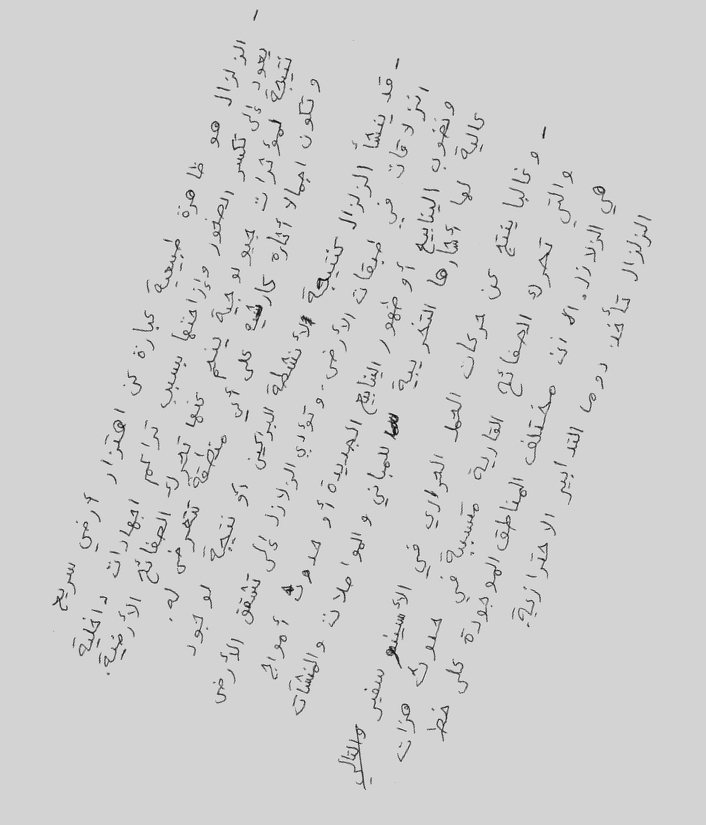 - الزلزال هو ظاهرة طبيعية عبارة عن اهتزاز أرضي سريع
يعود إلى تكسر الصخور وإزاحتها بسبب تراكم اجهادات داخلية
نتيجة لمؤثرات جيولوجية ينجم عنها تحرك الصفائح الأرضية.
وتكون اجمالا آثاره كارثية على أي منطقة تتعرض له.
- قد ينشأ الزلزال كنتيجة لأنشطة البراكين أو نتيجة لوجود
انزلاقات في طبقات الأرض. وتؤدي الزلازل إلى تشقق الأرض
ونضوب الينابيع أو ظهور الينابيع الجديدة أو حدوث أمواج
عالية لها آثارها التخريبية للمباني والمواصلات والمنشآت
- وغالبا ينتج عن حركات الحمل الحراري في الأسينو سفير والتالي
والتي تحرك الصفائح القارية متسببة في حدوث هزات
هي الزلازل. الا ان مختلف المناطق الموجودة على خط
الزلزال تأخذ دوما التدابير الاحترازية.